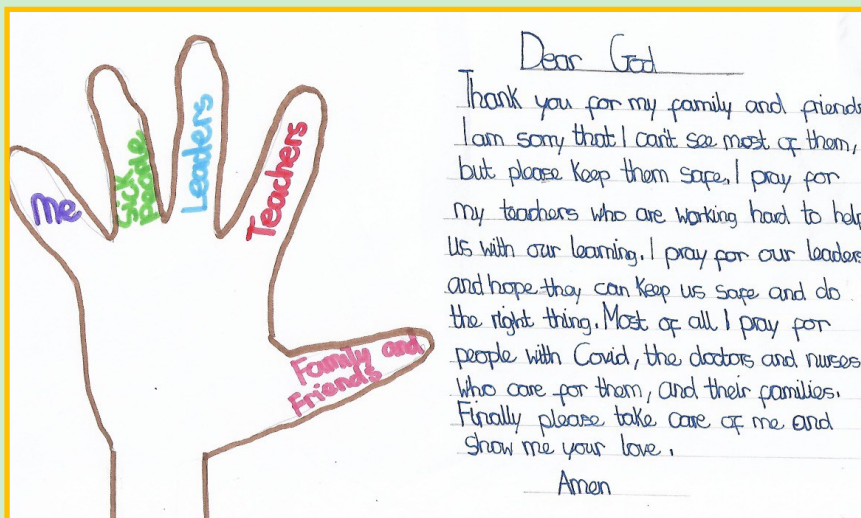 Me
Sick
People
Leaders
Teachers
Family and
Friends
Dear God
Thank you for my family and friends
I am sorry that I can't see most of them,
but please keep them safe. I pray for
my teachers who are working hard to help
us with our learning. I pray for our leaders
and hope they can keep us safe and do
the right thing. Most of all I pray for
people with Covid, the doctors and nurses
who care for them, and their families.
Finally please take care of me and
show me your love.
Amen